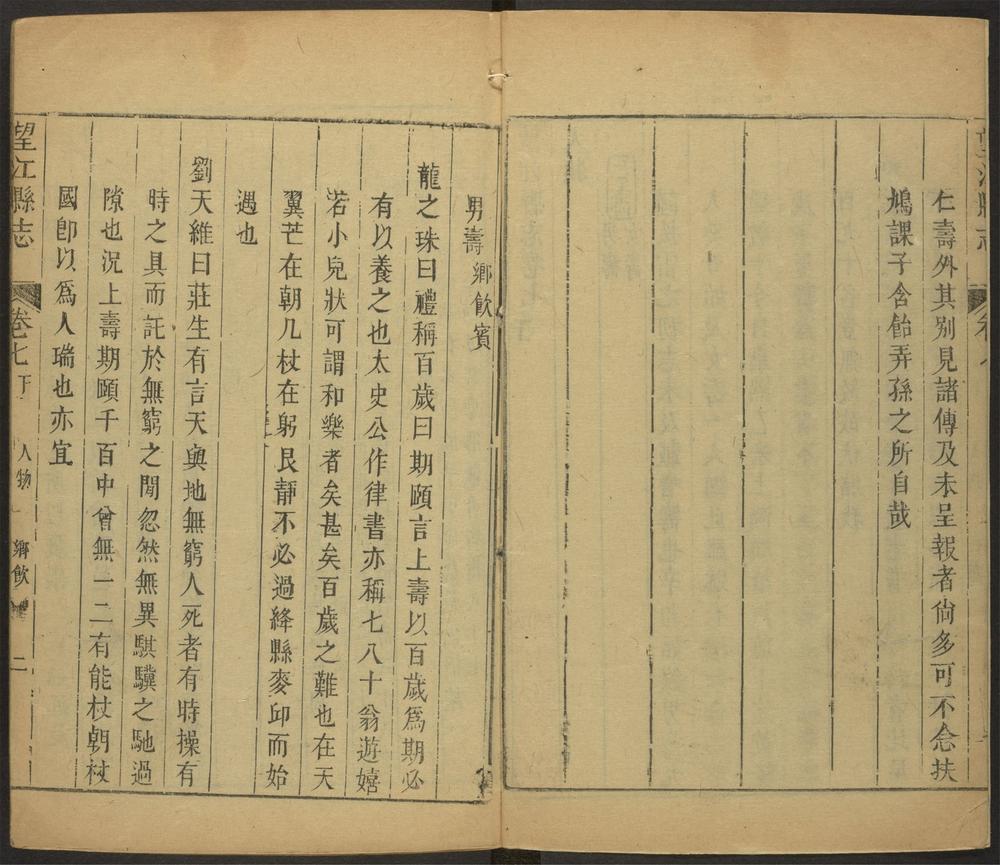 仁壽外其別見諸傳及未呈報者尙多可不念扶
鳩課子含飴弄孫之所自哉
男壽鄉飮賓
龍之珠曰禮稱百歲曰期頤言上壽以百歲爲期必
有以養之也太史公作律書亦稱七八十翁遊嬉
若小兒狀可謂和樂者矣甚矣百歲之難也在天
翼芒在朝几杖在躬艮靜不必過絳縣麥邱而始
遇也
劉天維曰莊生有言天與地無窮人死者有時操有
時之具而託於無窮之閒忽然無異騏驥之馳過
隙也況上壽期頤千百中曾無一二有能杖朝杖
國卽以爲人瑞也亦宜
望江縣志
卷七下
人物
鄉飮
二